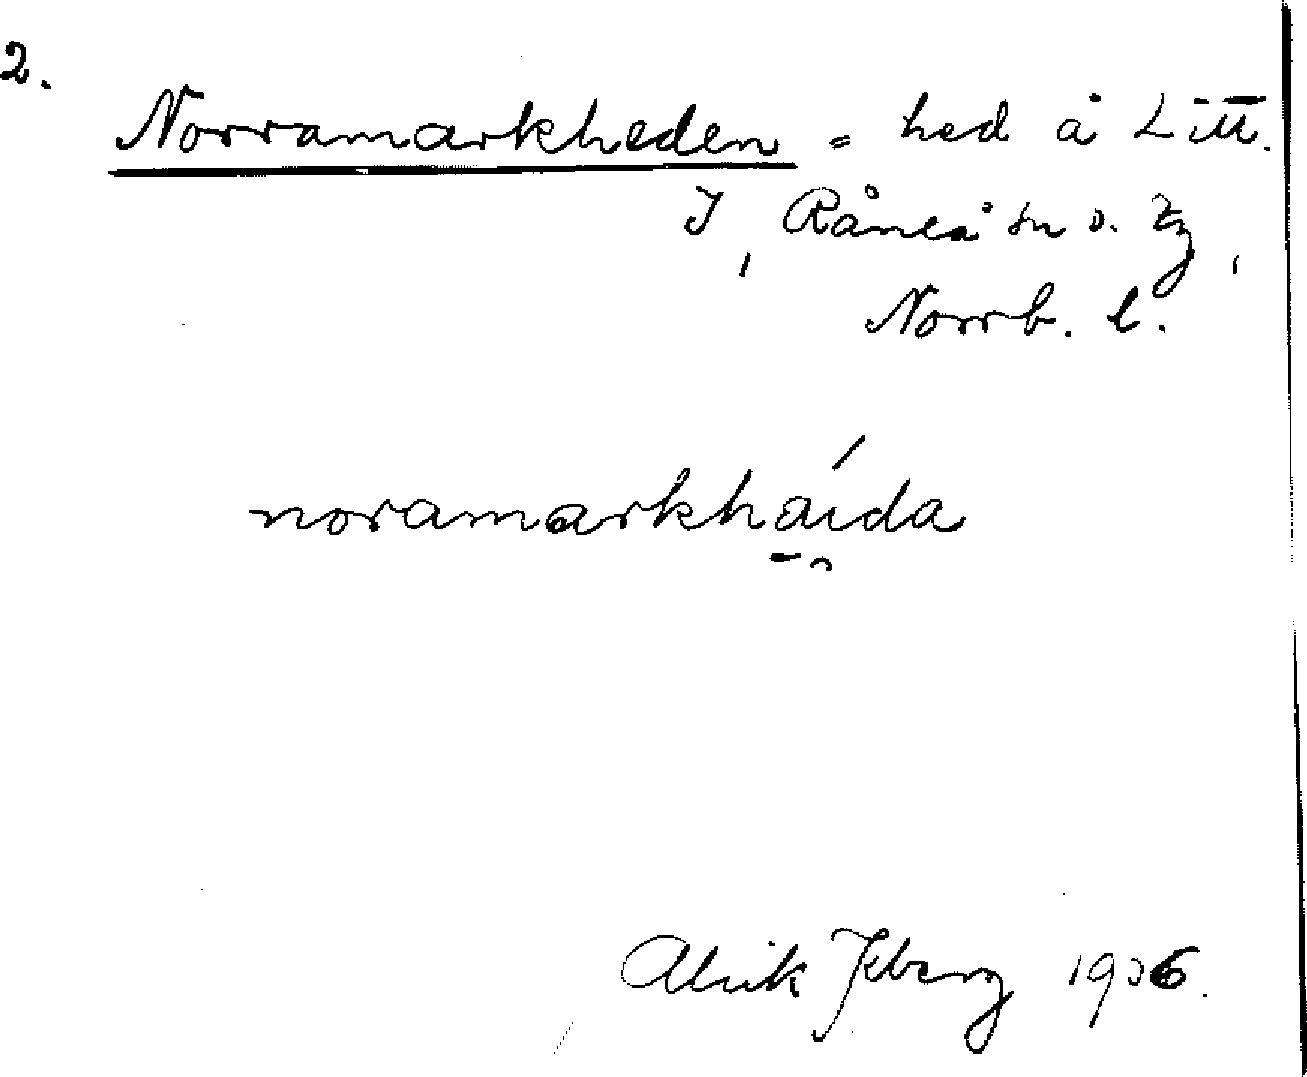 2.
Norramarkheden = hed å Litt.
I, Råneå sn o. tg,
Norrb. l.
noramarkhaida
Alrik 1906.